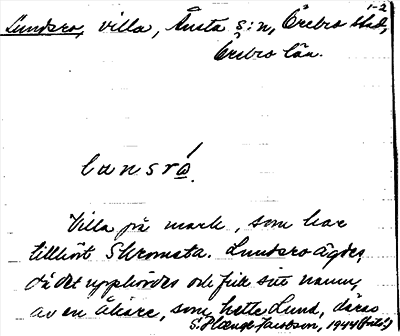 1-2
Lundsro, villa, Ånsta s:n, Örebro stad,
Örebro län.
lunsró.
Villa på mark, som har
tillhört Skromsta. Lundsro ägdes,
då det uppbördes och fick sitt namn,
av en åkare, som hette Lund, däras
S. Jacobson, 1944